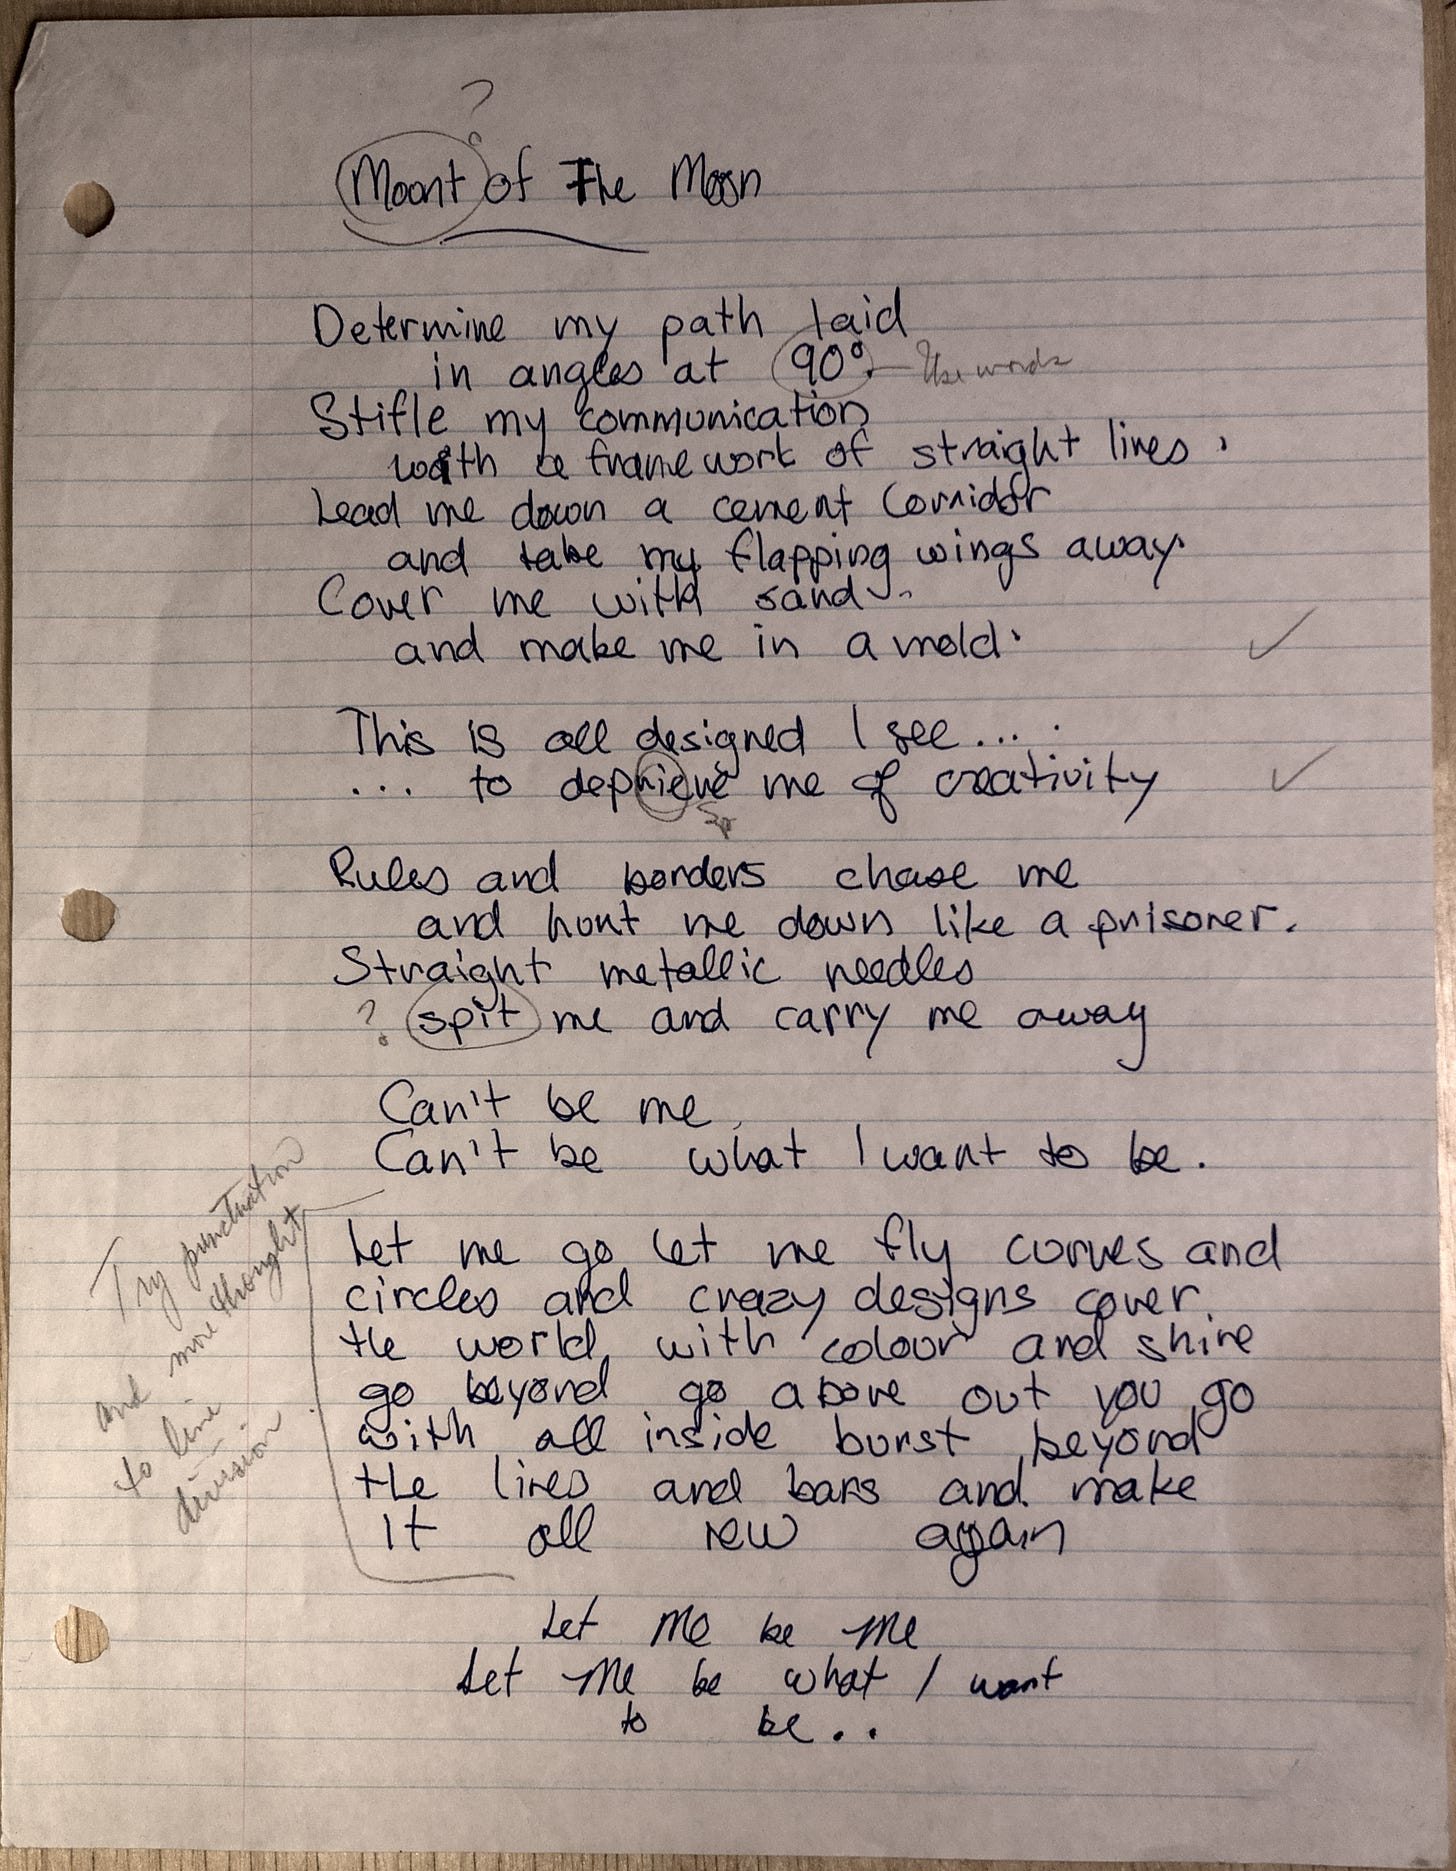 ?
Moont of The Moon
Determine my path laid
in angles at 90°. Use words
Stifle my communication
with a framework of straight lines.
Lead me down a cement corridor
and take my flapping wings away.
Cover me with sand
and make me in a mold.
This is all designed I see....
... to deprieve me of creativity
Sp
Rules and borders chase me
and hunt me down like a prisoner.
Straight metallic needles
? spit me and carry me away
Can't be me
Can't be what I want to be.
Try punctuation
and more thought
to line
division
Let me go let me fly curves and
circles and crazy designs cover
the world with colour and shine
go beyond go above out you go
with all inside burst beyond
the lines and bars and make
it all new again
Let me be me
Let me be what I want
to be..